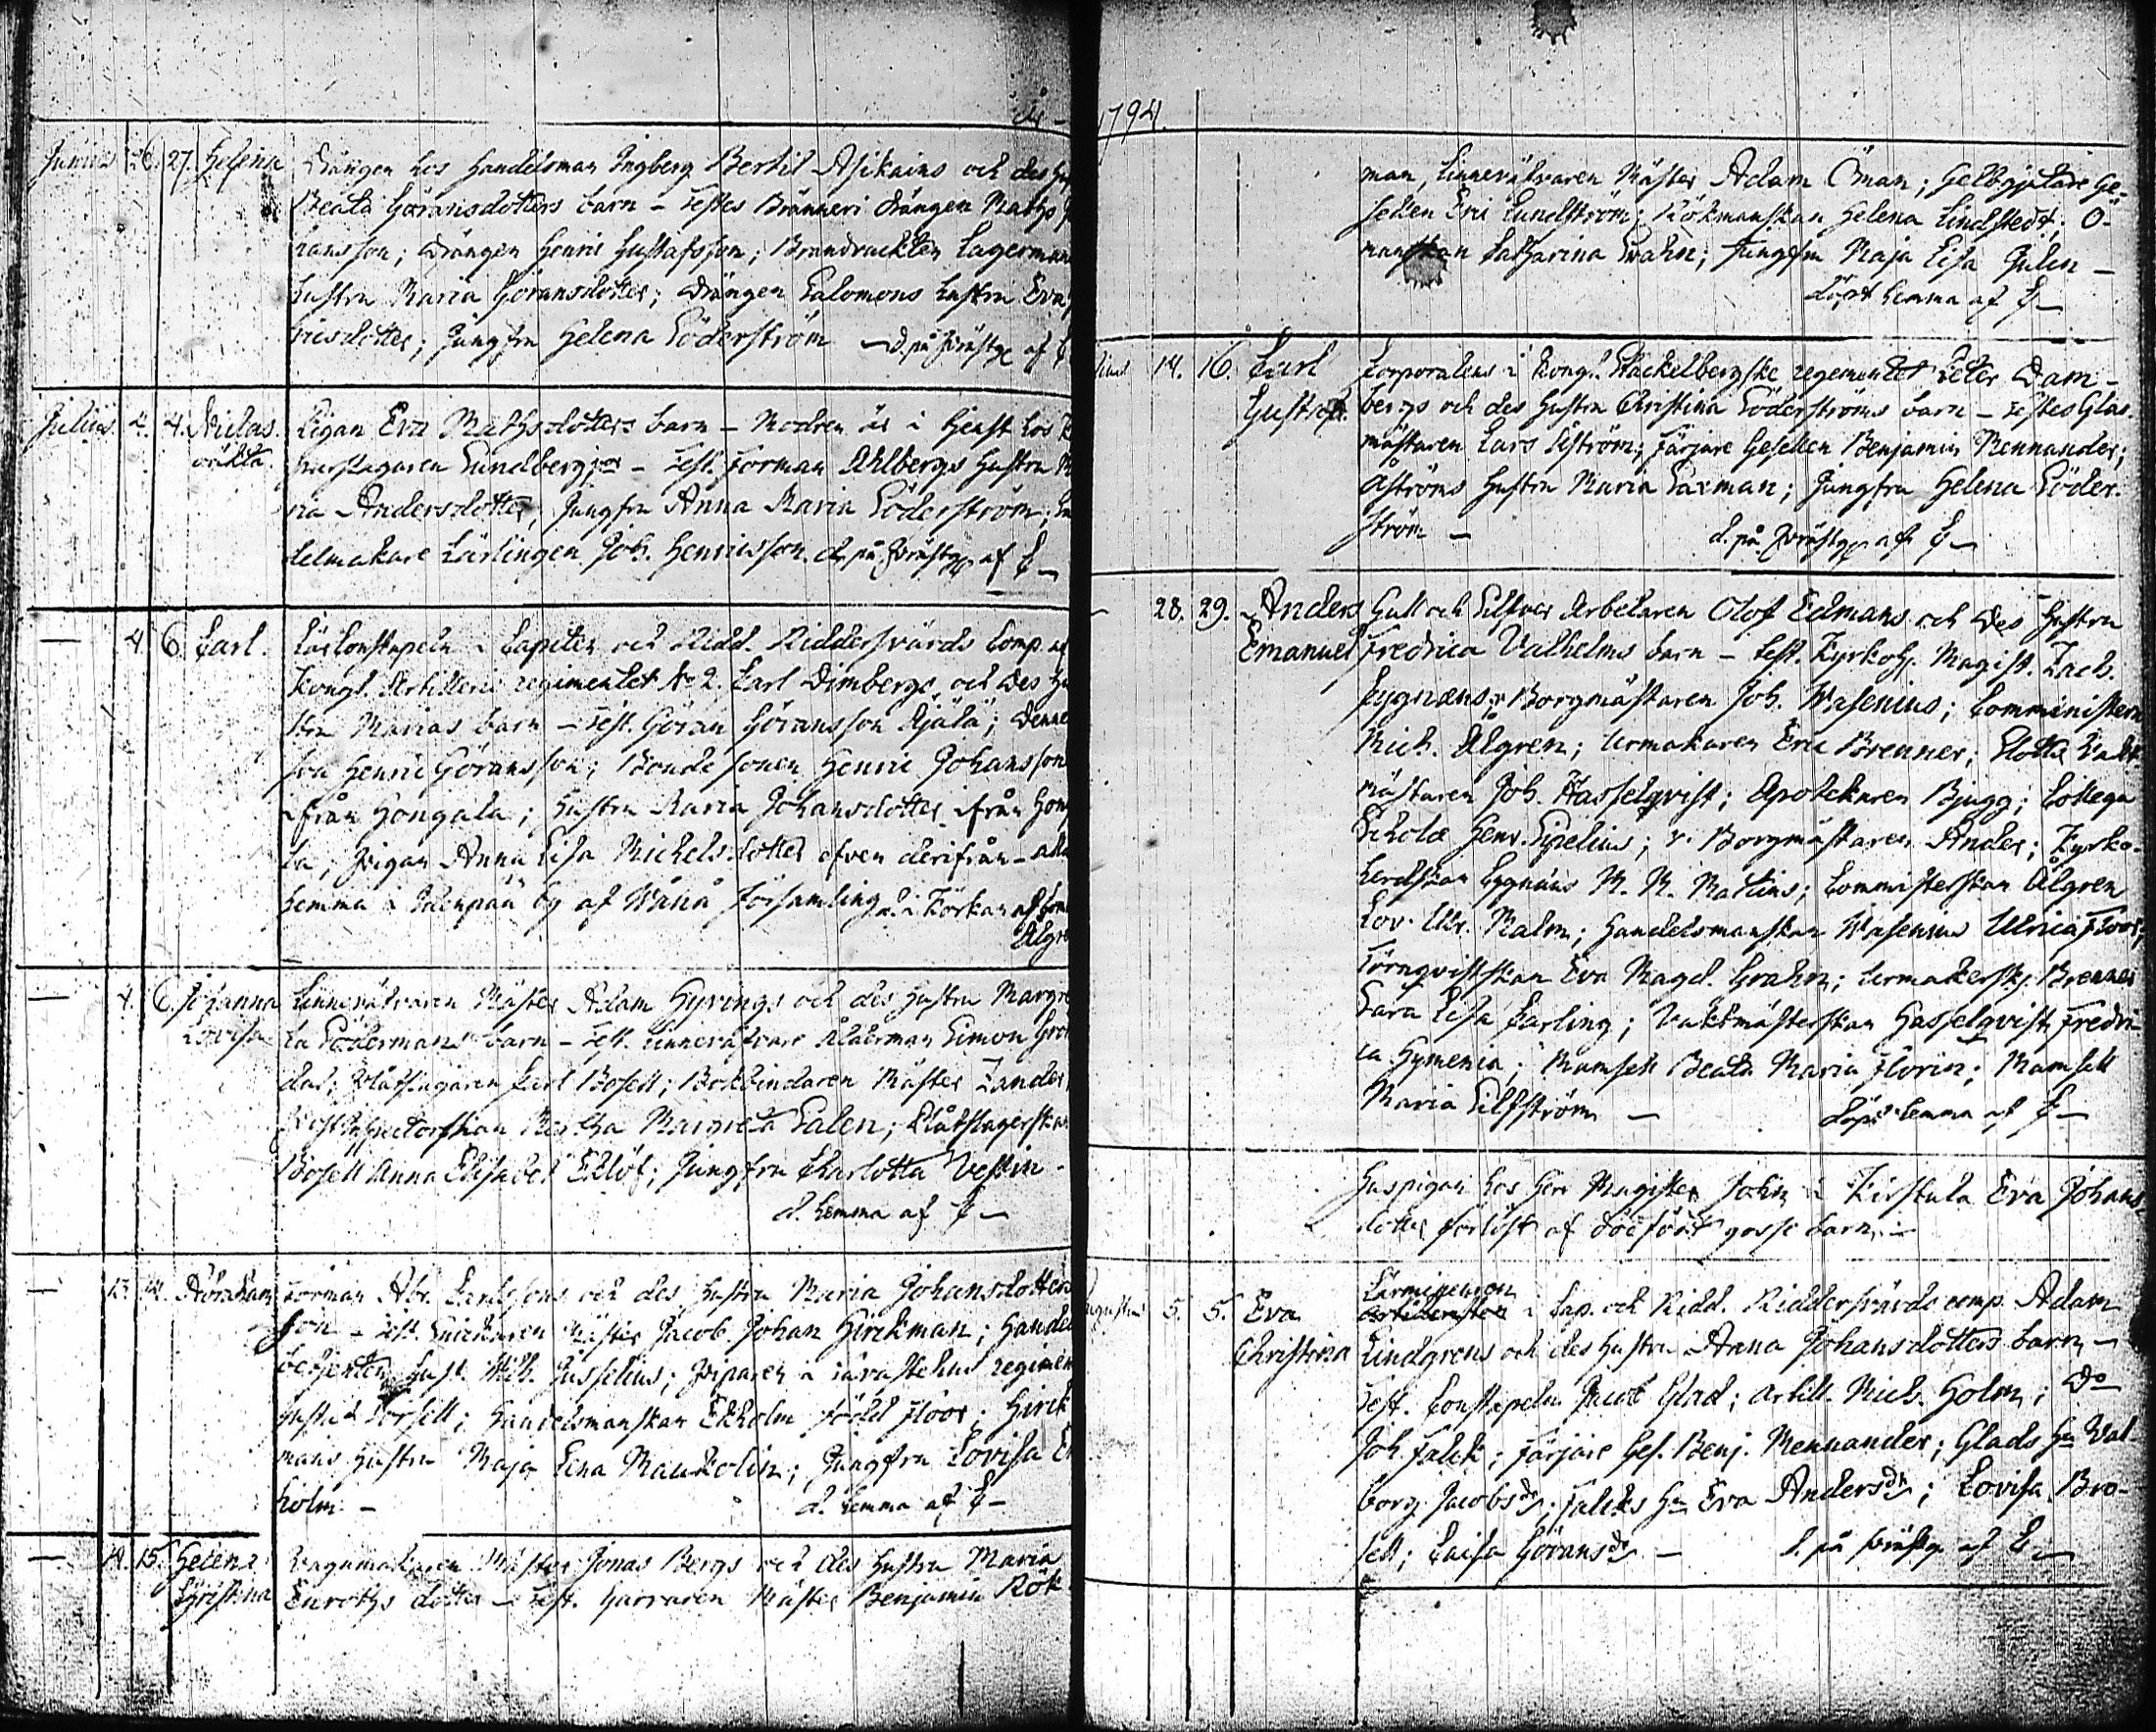 År
Junius 26. 27. Helena Drängen hos Handelsman Ingberg Bertil Asikains och des Hu
Beata Göransdotters barn – Testes Bränneri drängen Mats Gö
ransson; drängen Henric Gustafsson; Brandvackten Lagermans
hustru Maria Göransdotter; Drängen Salomons hustru Eva
ricsdotter; Jungfru Helena Söderström – d. på Präst. af
Julius. 2. 4. Niclas. Pigan Eva Mathsdotters barn – Modren är i tjenst hos
oäkta. Sundberg – Test. Forman Ahlbergs Hustru
na Andersdotter; Jungfru Anna Maria Söderström;
delmakare Lärlingen Joh. Henricsson. d. på Präst. af
– 4. 6. Carl. Lärconstapeln i Capiten och Ridd. Riddersvärds Comp. af
Kongl. Artilleri regimentet No 2. Carl Dimbergs och des Hu
stru Marias barn – Test. Göran Göransson Äjälä; Dennes
son Henric Göransson; Bonde sonen Henric Johansson
ifrån Hongala; Hustru Maria Johansdotter ifrån Hong
la; Pigan Anna Lisa Michelsdotter äfven derifrån – alla
hemma i by af Wånå församling d. i Körkan af Com
Algre
– 4. 6. Johanna Linnevätvaren Mäster Adam Hyrings och des Hustru Margre
Lovisa ta Södermans barn – Test. Linnevätvare Ålderman Simon
Plåtslagaren Carl Bosell; Bokbindaren Mäster Zander
Margreta Salen; Plåtslagerskan
Bosell Anna Elisabet Edlöf; Jungfru Charlotta Vestin –
d. hemma af
– 13. 14. Abraham Forman Abr. Carlssons och des Hustru Maria Johansdotters
son – Test. Snickaren Mäster Jacob Johan Hirckman; Handels
betjenten Gust. Wilh. Gusselius; Piparen i Tavastehus regimen
Gustaf Forsell; Handelsmanskan Ekholm född Floor; Hirck
mans Hustru Maja Lena Maukolin; Jungfru Lovisa Ek
holm – d. hemma af
– 14. 15. Helena Vagnmakaren Mäster Jonas Bergs och des Hustru Maria
Christina Euroths dotter – Test. Garvaren Mäster Benjamin Rök
1794.
man, Linnevätvaren Mäster Adam Öman; Gelbgjutare Ge-
sellen Eric Lundström; Rökmanskan Helena Lindstedt; Ö-
manskan Catharina Svahn; Jungfru Maja Lisa Julin –
döpt hemma af
lius 14. 16. Carl Corporalens i Kongl. Stackelbergske regementet Peter Dam-
Gustaf. bergs och des Hustru Christina Söderströms barn – Testes Glas-
mästaren Lars Åström; Färjare Gesellen Benjamin Mennander;
Åströms Hustru Maria Saxman; Jungfru Helena Söder-
ström – d. på Präst. af
– 28. 29. Anders Gull och Silfver Arbetaren Olof Edmans och des Hustru
Emanuel Fredrica Valhelms barn – Test. Kyrkoh. Magist. Zach.
Cygnæus; Borgmästaren Joh. Wasenius; Comministern
Mich. Algren; Urmakaren Eric Brenner; Slotts Vakt
mästaren Joh. Hasselqvist; Apotekaren Bjugg; Collega
Scholæ Henr. Sipelius; v. Borgmästaren Ander; Kyrko-
herdskan Cygnæus M. M. Malins; Commisterskan Ålgren
Lov. Ulr. Malm; Handelsmanskan Wasenius Ulrica Floor;
Törnqvistskan Eva Magd. Grahn; Urmakersk. Brenner
Sara Lisa Carling; Vaktmästerskan Hasselqvist Fredri
ca Hymenia; Mamsell Beata Maria Florin; Mamsell
Maria Silfström – döpt hemma af
Huspigan hos Herr Magister Johan i Kirstula Eva Johans-
dotter förlöst af dödfödt gosse barn –
Augustus 5. 5. Eva i Cap. och Ridd. Riddersvärds comp. Adam
Christina Lindgrens och des Hustru Anna Johansdotters barn –
Test. Constapeln Jacob Glad; Artill. Mich. Holm; Do
Joh. Falck; Färjare Ges. Benj. Mennander; Glads Hu Val-
borg Jacobsdr; Falcks Hu Eva Andersdr; Lovisa Bro-
sell; Caisa Göransdr – d. på Präst. af